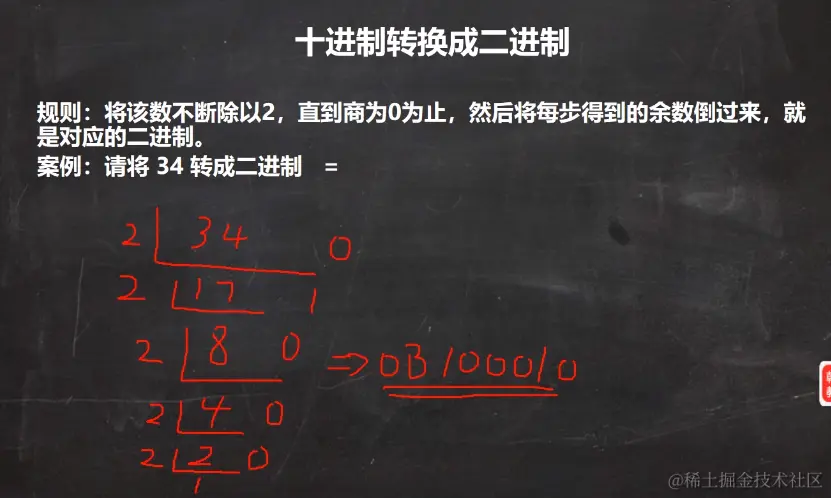 十进制转换成二进制
规则：将该数不断除以2，直到商为0为止，然后将每步得到的余数倒过来，就
是对应的二进制。
案例：请将 34 转成二进制 =
2 34 0
2 17 1
2 8 0
⇒ 0B100010
2 4 0
2 2 0
1
@稀土掘金技术社区